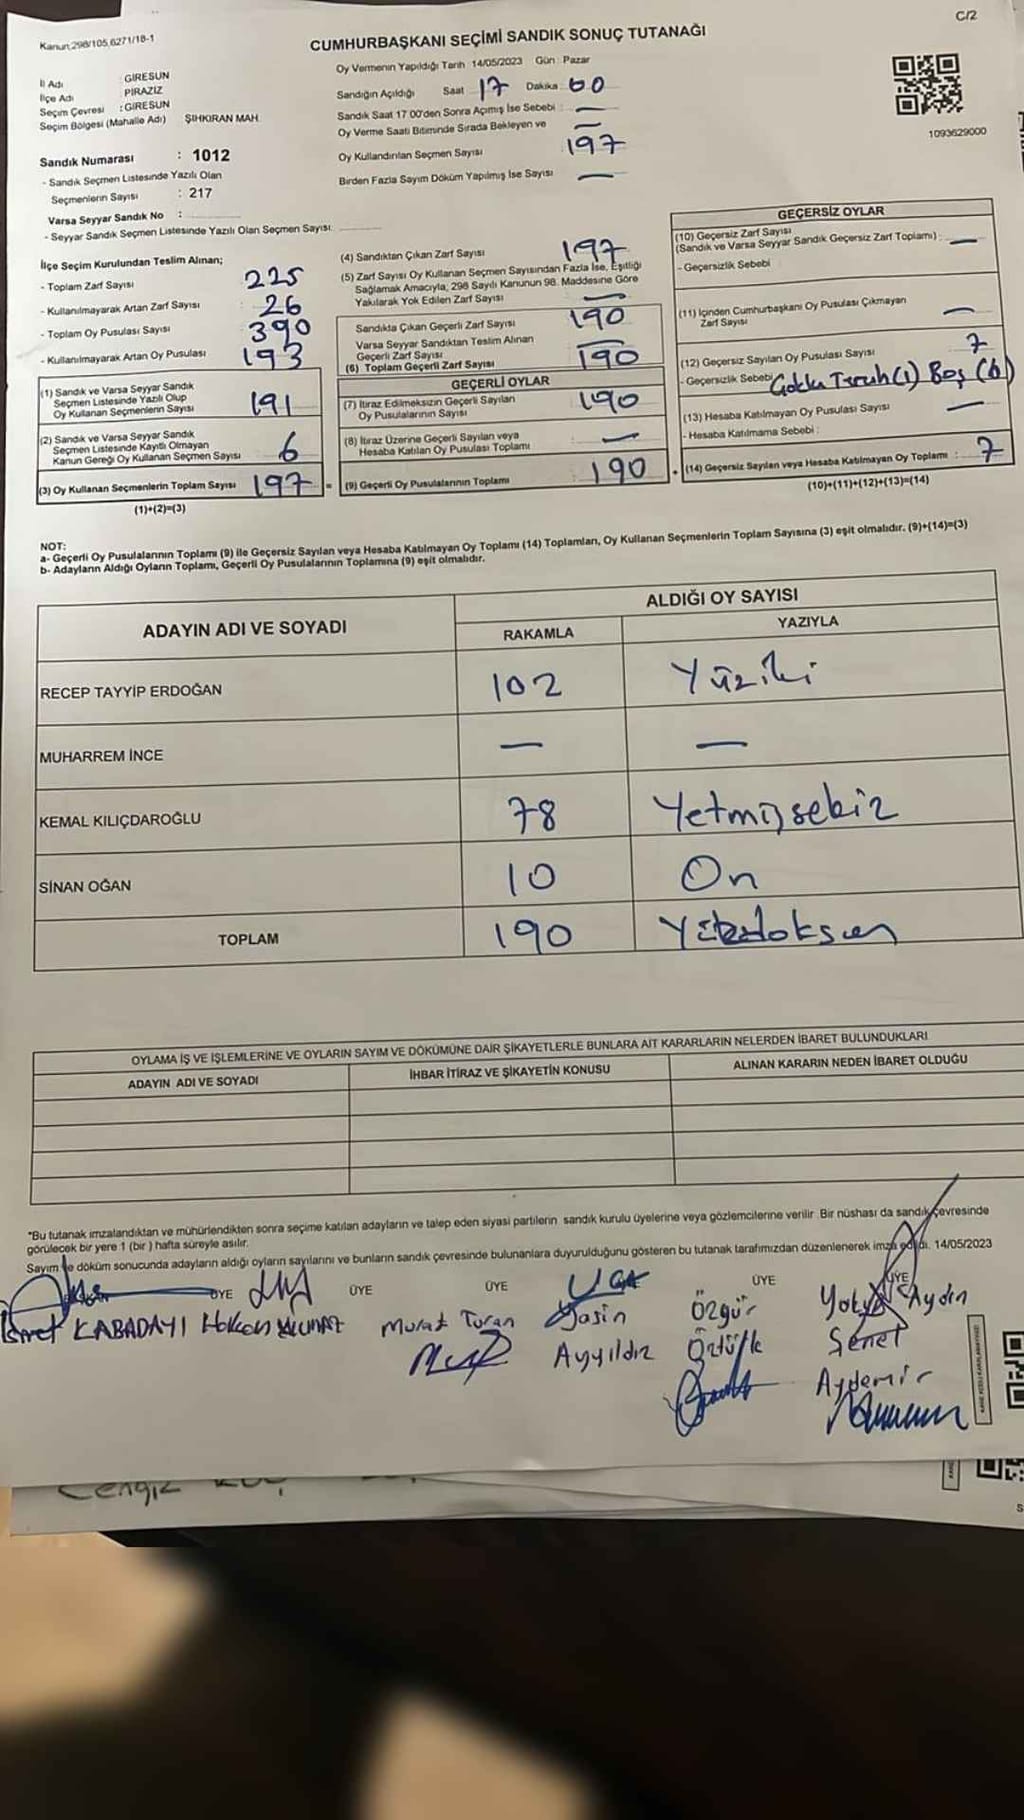 C/2
Kanun;298/105,6271/18-1
CUMHURBAŞKANI SEÇİMİ SANDIK SONUÇ TUTANAĞI
İl Adı : GİRESUN
İlçe Adı : PİRAZİZ
Seçim Çevresi : GİRESUN
Seçim Bölgesi (Mahalle Adı) ŞIHKIRAN MAH.
Sandık Numarası : 1012
- Sandık Seçmen Listesinde Yazılı Olan
Seçmenlerin Sayısı : 217
Varsa Seyyar Sandık No :
- Seyyar Sandık Seçmen Listesinde Yazılı Olan Seçmen Sayısı:
Oy Vermenin Yapıldığı Tarih 14/05/2023 Gün : Pazar
Sandığın Açıldığı Saat 17 Dakika 00
Sandık Saat 17 00'den Sonra Açımış İse Sebebi : —
Oy Verme Saati Bitiminde Sırada Bekleyen ve —
Oy Kullandırılan Seçmen Sayısı 197
Birden Fazla Sayım Döküm Yapılmış İse Sayısı —
1093629000
İlçe Seçim Kurulundan Teslim Alınan;
- Toplam Zarf Sayısı : 225
- Kullanılmayarak Artan Zarf Sayısı : 26
- Toplam Oy Pusulası Sayısı : 390
- Kullanılmayarak Artan Oy Pusulası : 193
(1) Sandık ve Varsa Seyyar Sandık
Seçmen Listesinde Yazılı Olup
Oy Kullanan Seçmenlerin Sayısı : 191
(2) Sandık ve Varsa Seyyar Sandık
Seçmen Listesinde Kayıtlı Olmayan
Kanun Gereği Oy Kullanan Seçmen Sayısı : 6
(3) Oy Kullanan Seçmenlerin Toplam Sayısı : 197 =
(1)+(2)=(3)
(4) Sandıktan Çıkan Zarf Sayısı 197
(5) Zarf Sayısı Oy Kullanan Seçmen Sayısından Fazla İse, Eşitliği
Sağlamak Amacıyla, 298 Sayılı Kanunun 98. Maddesine Göre
Yakılarak Yok Edilen Zarf Sayısı —
Sandıkta Çıkan Geçerli Zarf Sayısı : 190
Varsa Seyyar Sandıktan Teslim Alınan
Geçerli Zarf Sayısı —
(6) Toplam Geçerli Zarf Sayısı : 190
GEÇERLİ OYLAR
(7) İtiraz Edilmeksizin Geçerli Sayılan
Oy Pusulalarının Sayısı : 190
(8) İtiraz Üzerine Geçerli Sayılan veya
Hesaba Katılan Oy Pusulası Toplamı : —
(9) Geçerli Oy Pusulalarının Toplamı : 190 +
GEÇERSİZ OYLAR
(10) Geçersiz Zarf Sayısı
(Sandık ve Varsa Seyyar Sandık Geçersiz Zarf Toplamı) : —
- Geçersizlik Sebebi
(11) İçinden Cumhurbaşkanı Oy Pusulası Çıkmayan
Zarf Sayısı —
(12) Geçersiz Sayılan Oy Pusulası Sayısı 7
- Geçersizlik Sebebi Çoklu Tercih (1) Boş (6)
(13) Hesaba Katılmayan Oy Pusulası Sayısı —
- Hesaba Katılmama Sebebi :
(14) Geçersiz Sayılan veya Hesaba Katılmayan Oy Toplamı : 7
(10)+(11)+(12)+(13)=(14)
NOT:
a- Geçerli Oy Pusulalarının Toplamı (9) ile Geçersiz Sayılan veya Hesaba Katılmayan Oy Toplamı (14) Toplamları, Oy Kullanan Seçmenlerin Toplam Sayısına (3) eşit olmalıdır. (9)+(14)=(3)
b- Adayların Aldığı Oyların Toplamı, Geçerli Oy Pusulalarının Toplamına (9) eşit olmalıdır.
ADAYIN ADI VE SOYADI ALDIĞI OY SAYISI
RAKAMLA YAZIYLA
RECEP TAYYİP ERDOĞAN 102 Yüziki
MUHARREM İNCE — —
KEMAL KILIÇDAROĞLU 78 Yetmişsekiz
SİNAN OĞAN 10 On
TOPLAM 190 Yüzdoksan
OYLAMA İŞ VE İŞLEMLERİNE VE OYLARIN SAYIM VE DÖKÜMÜNE DAİR ŞİKAYETLERLE BUNLARA AİT KARARLARIN NELERDEN İBARET BULUNDUKLARI
ADAYIN ADI VE SOYADI İHBAR İTİRAZ VE ŞİKAYETİN KONUSU ALINAN KARARIN NEDEN İBARET OLDUĞU
*Bu tutanak imzalandıktan ve mühürlendikten sonra seçime katılan adayların ve talep eden siyasi partilerin sandık kurulu üyelerine veya gözlemcilerine verilir Bir nüshası da sandık çevresinde
görülecek bir yere 1 (bir ) hafta süreyle asılır.
Sayım ve döküm sonucunda adayların aldığı oyların sayılarını ve bunların sandık çevresinde bulunanlara duyurulduğunu gösteren bu tutanak tarafımızdan düzenlenerek imza edildi. 14/05/2023
ÜYE ÜYE ÜYE ÜYE ÜYE
KABADAYI Hakan YILMAZ Murat Turan Yasin Özgür Aydın
Ayyıldız Öztürk Senet
Aydemir
Cengiz